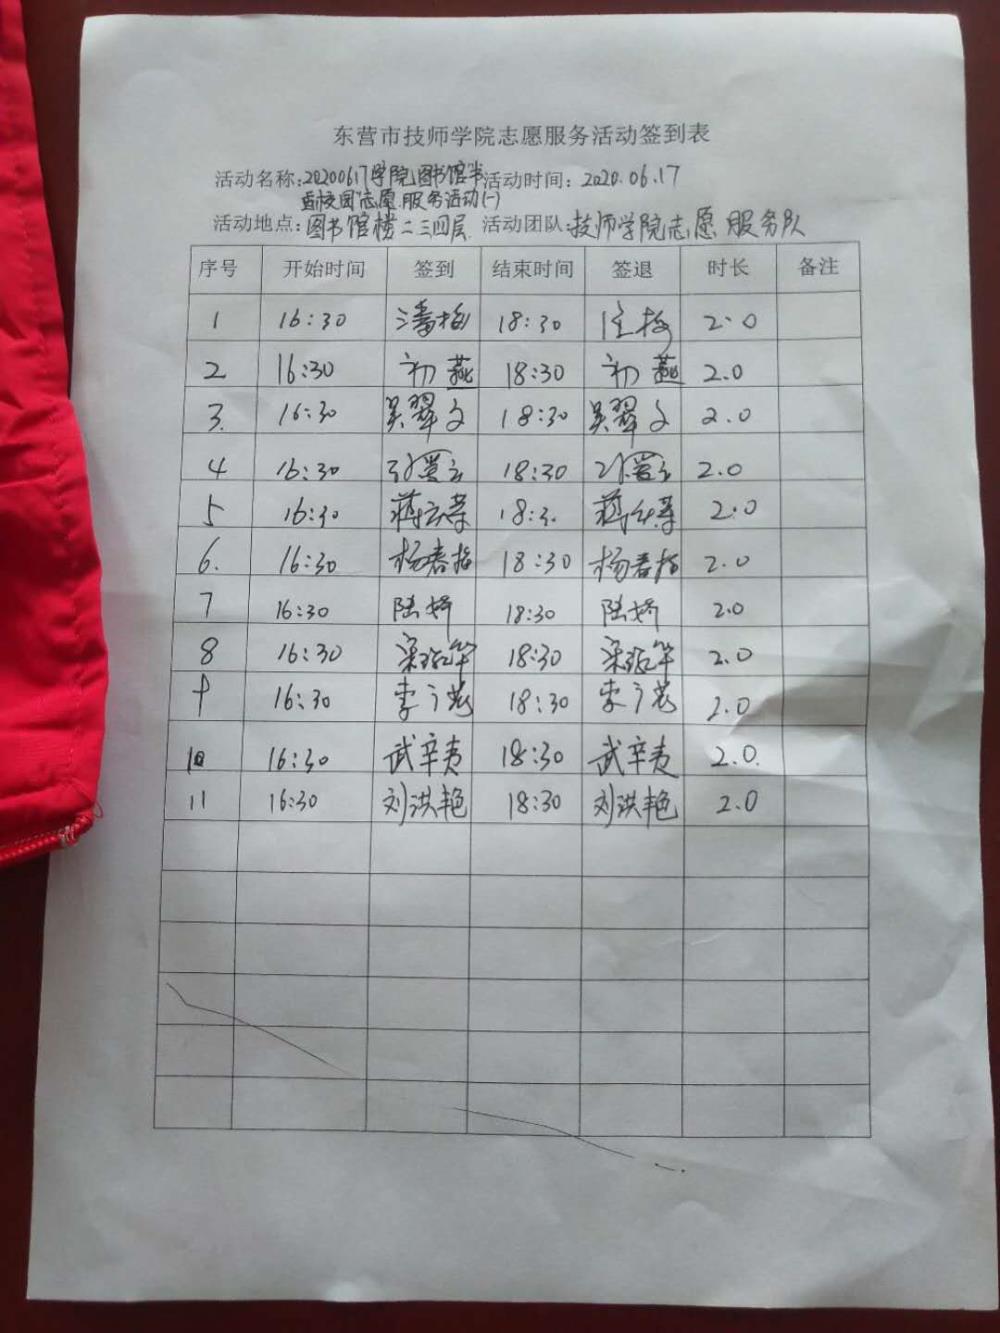 东营市技师学院志愿服务活动签到表
活动名称:20200617学院图书馆 活动时间: 2020.06.17
校园志愿服务活动(一)
活动地点: 图书馆楼二三四层 活动团队: 技师学院志愿服务队
序号 开始时间 签到 结束时间 签退 时长 备注
1 16:30 潘梅 18:30 2.0
2 16:30 初燕 18:30 初燕 2.0
3. 16:30 吴翠文 18:30 吴翠文 2.0
4 16:30 18:30 2.0
5 16:30 18:3. 2.0
6. 16:30 杨春梅 18:30 杨春梅 2.0
7 16:30 陆娇 18:30 陆娇 2.0
8 16:30 18:30 2.0
9 16:30 18:30 2.0
10 16:30 武辛夷 18:30 武辛夷 2.0.
11 16:30 刘洪艳 18:30 刘洪艳 2.0